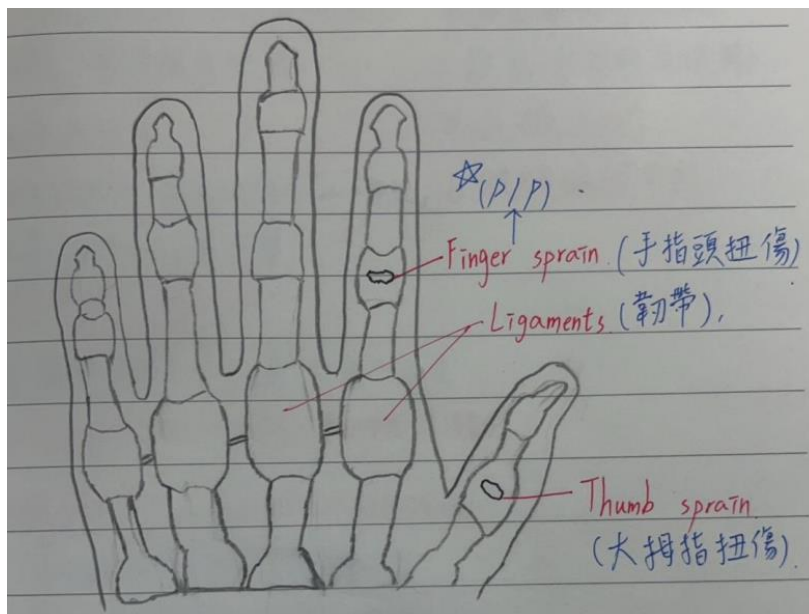 ☆(PIP).
Finger sprain (手指頭扭傷)
Ligaments (韌帶),
Thumb sprain
(大拇指扭傷).